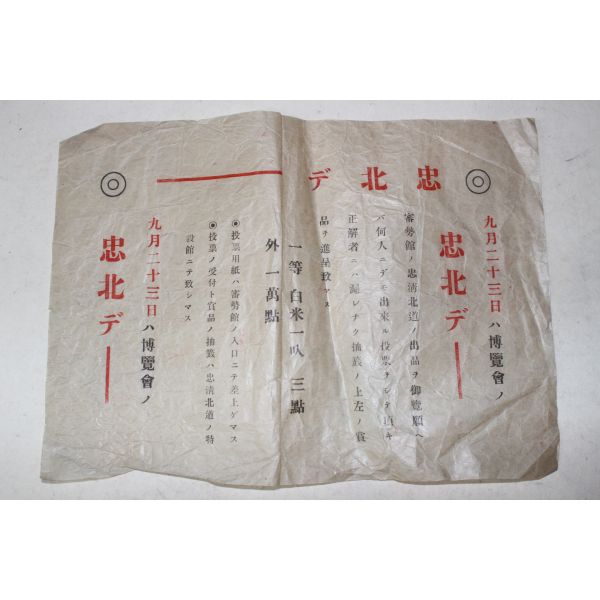 九月二十三日ハ博覽會ノ
忠北デー
忠北デー
審勢館ノ忠淸北道ノ出品ヲ御覽願ヘ
バ何人ニデモ出來ル投票ヲシテ頂キ
正解者ニハ漏レナク抽籤ノ上左ノ賞
品ヲ進呈致マス
一等 白米一叺 三點
外 一萬點
◉投票用紙ハ審勢館ノ入口ニテ差上ゲマス
◉投票ノ受付ト賞品ノ抽籤ハ忠淸北道ノ特
設館ニテ致シマス
九月二十三日ハ博覽會ノ
忠北デー